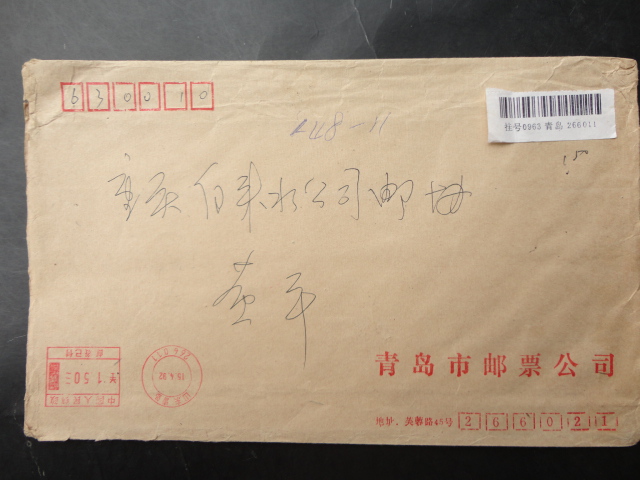 630010
挂号0963 青岛 266011
148-11
15
重庆自来水公司邮协
黄平
邮资已付
¥1.50
中国人民邮政
青岛市邮票公司
地址：芙蓉路45号 266021